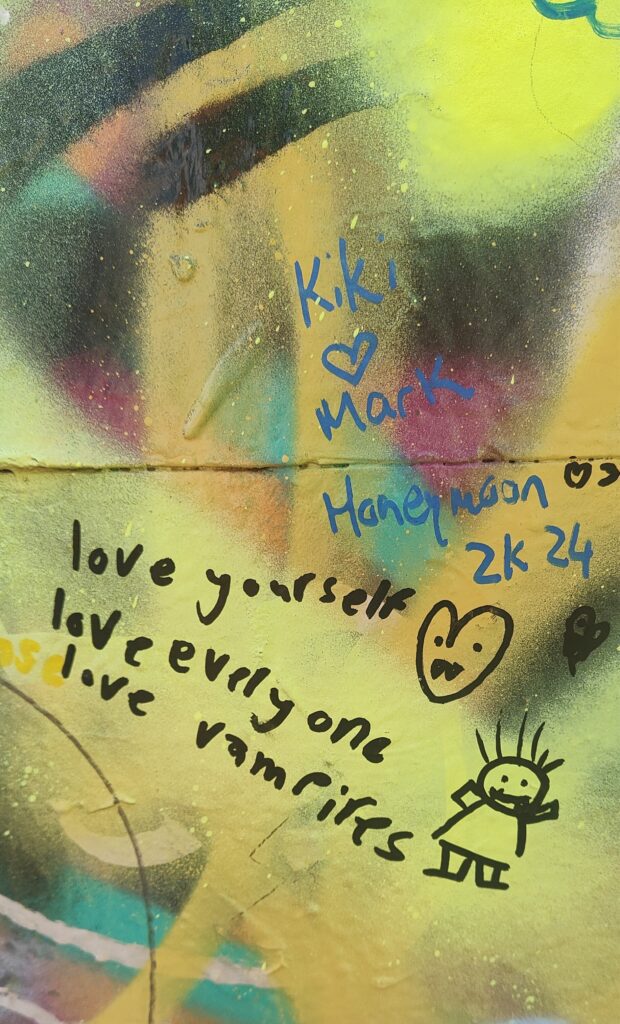 Kiki
♡
Mark
Honeymoon
2K24
love yourself
love everyone
love vampires